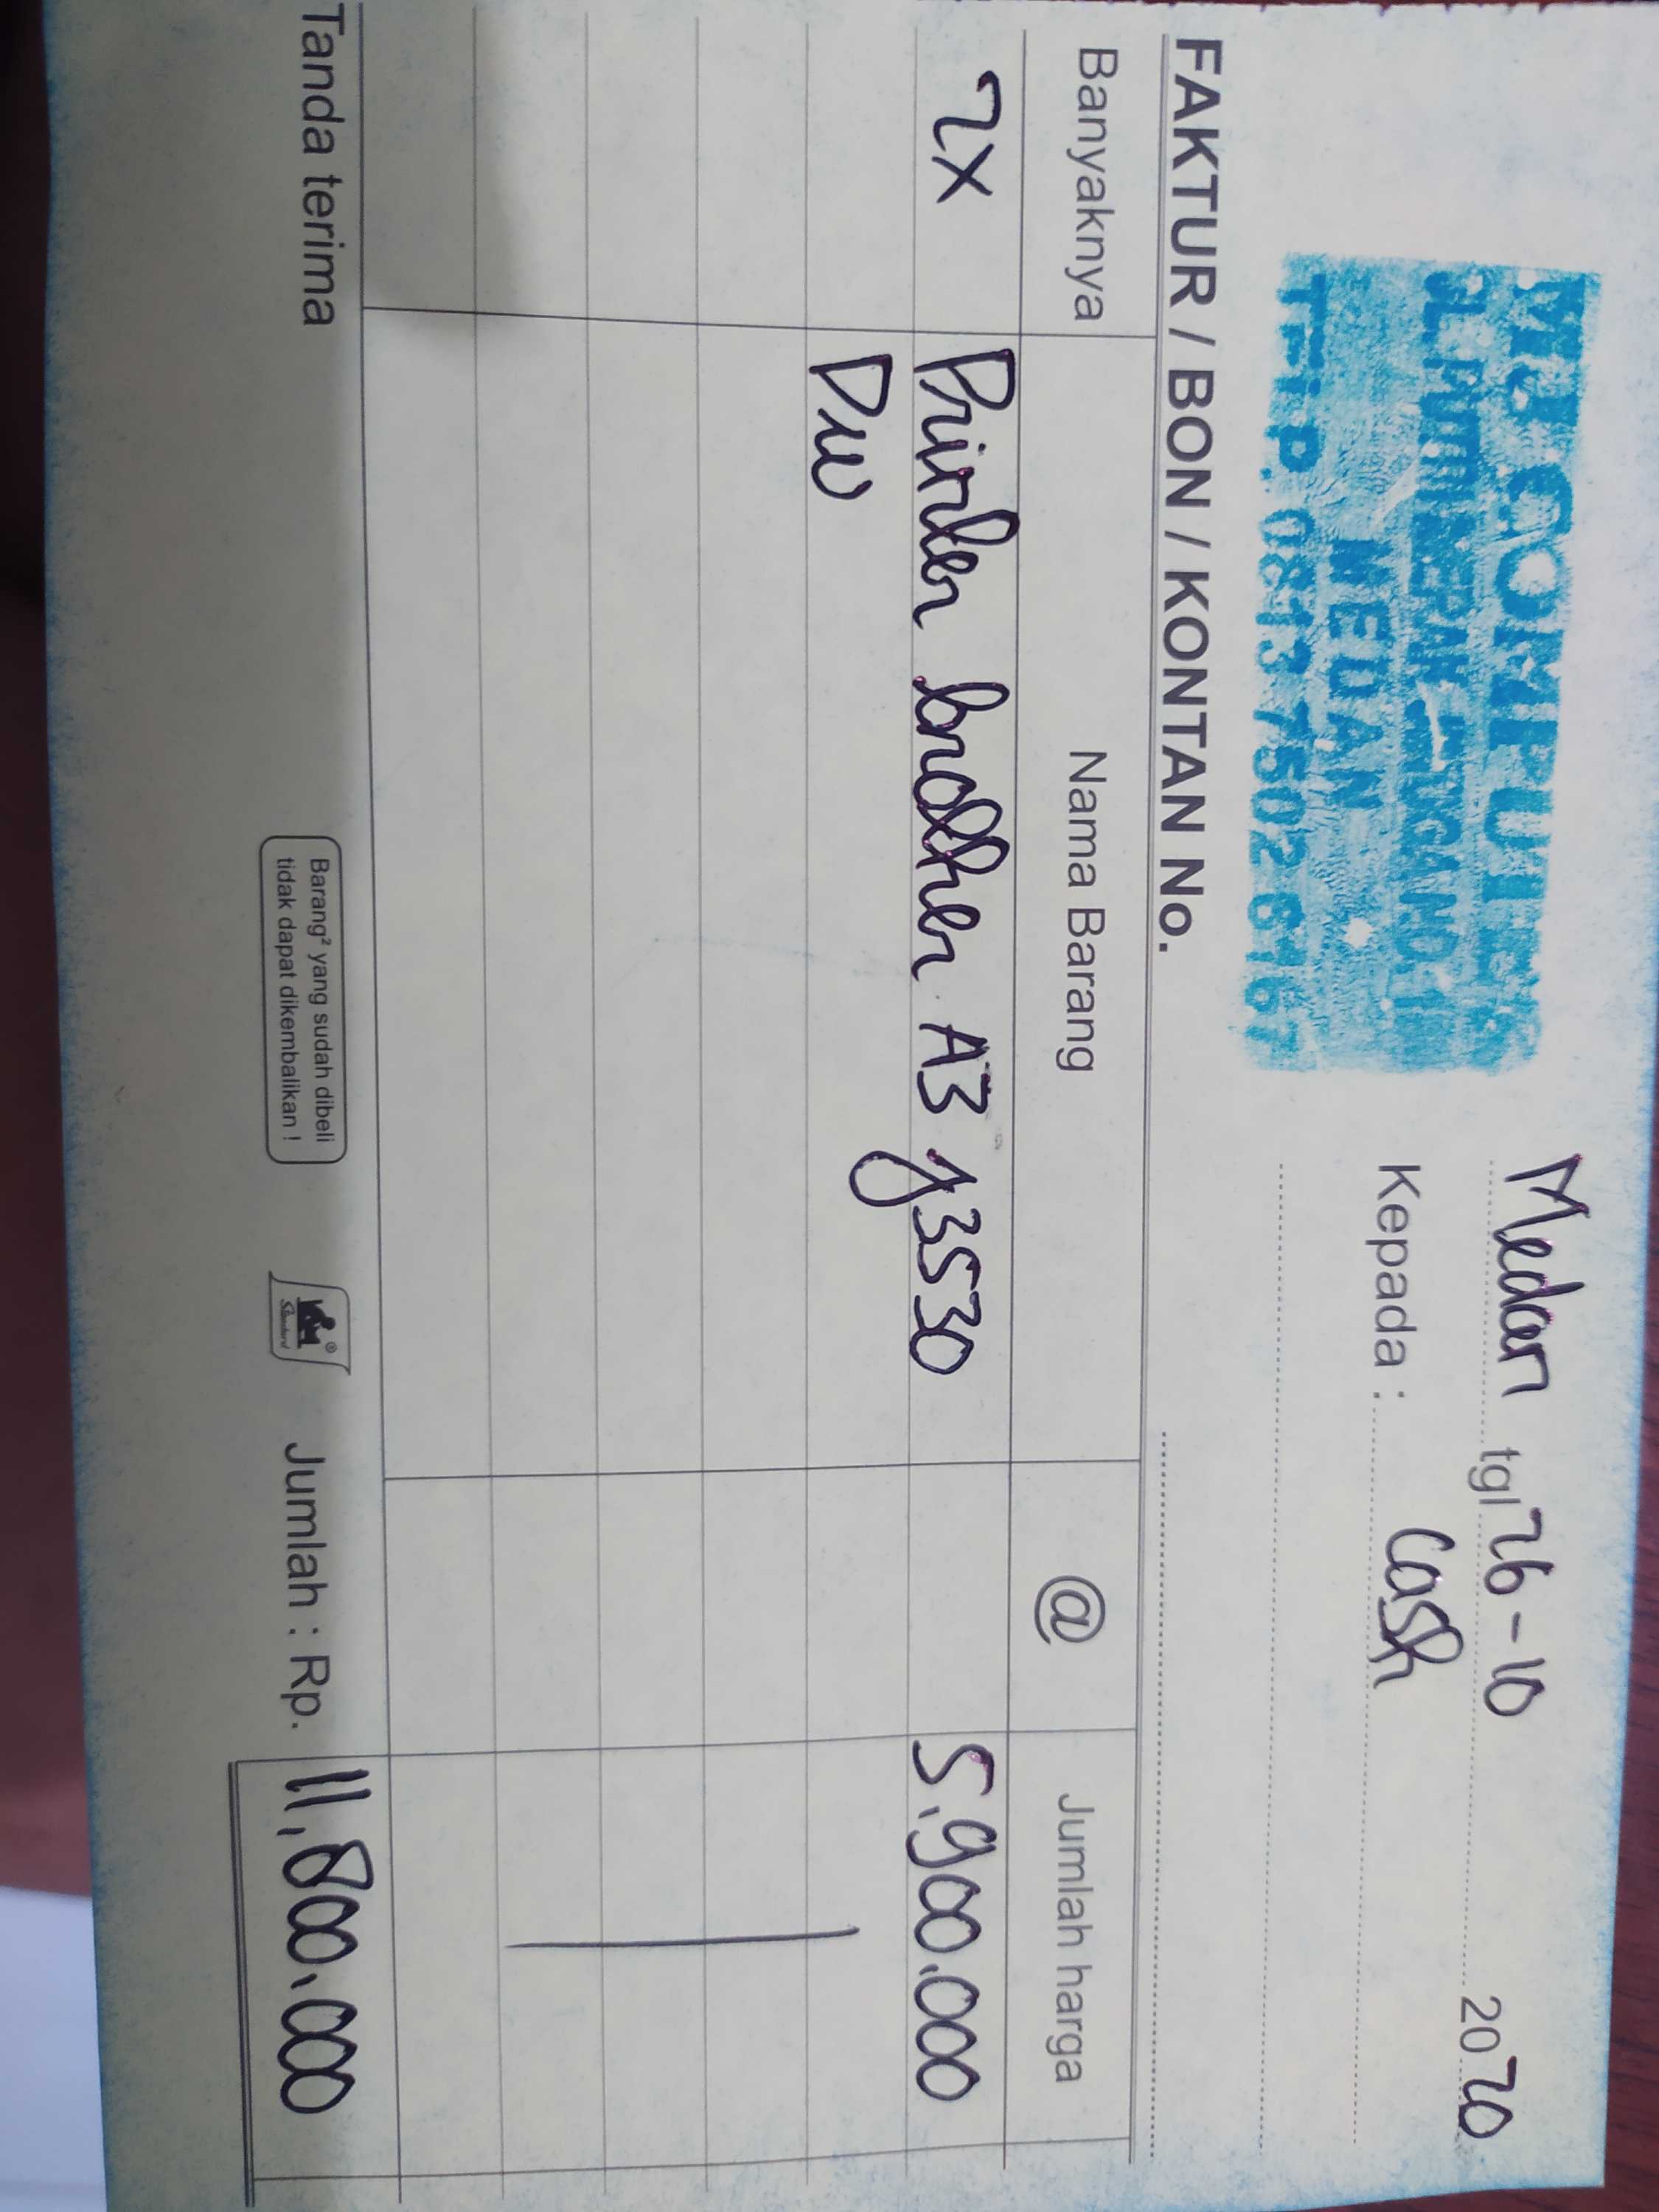 MJ COMPUTER
JL. PUTRI MERAK JINGGA NO. 1
MEDAN
TELP. 0813 7502 6167
Medan tgl 26-10 2020
Kepada : Cash
FAKTUR / BON / KONTAN No.
Banyaknya Nama Barang @ Jumlah harga
2x Printer brother A3 J3530 5.900.000
DW
Tanda terima
Barang² yang sudah dibeli
tidak dapat dikembalikan !
Standard ®
Jumlah : Rp. 11,800.000